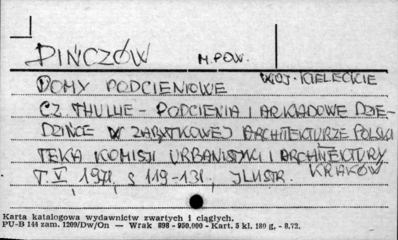 PIŃCZÓW M.POW.
WOJ. KIELECKIE
DOMY PODCIENIOWE
CZ. THULLIE - PODCIENIA I ARKADOWE DZIE-
DZIŃCE W ZABYTKOWEJ ARCHITEKTURZE POLSKI
TEKA KOMISJI URBANISTYKI I ARCHITEKTURY
T. V, 1971, S 119-131, ILUSTR. KRAKÓW
Karta katalogowa wydawnictw zwartych i ciągłych.
PU-B 144 zam. 1209/Dw/On — Wrak 898 - 950.000 - Kart. 5 kl. 180 g. - 8.72.